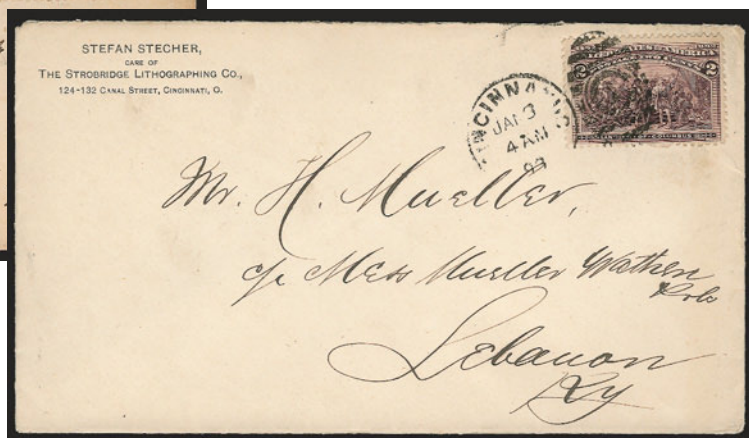 STEFAN STECHER,
CARE OF
THE STROBRIDGE LITHOGRAPHING CO.,
124-132 CANAL STREET, CINCINNATI, O.
CINCINNATI, O.
JAN 3
4 AM
93
2 2
Mr. H. Mueller,
c/o Mess Mueller Wathen
Lebanon
Ky